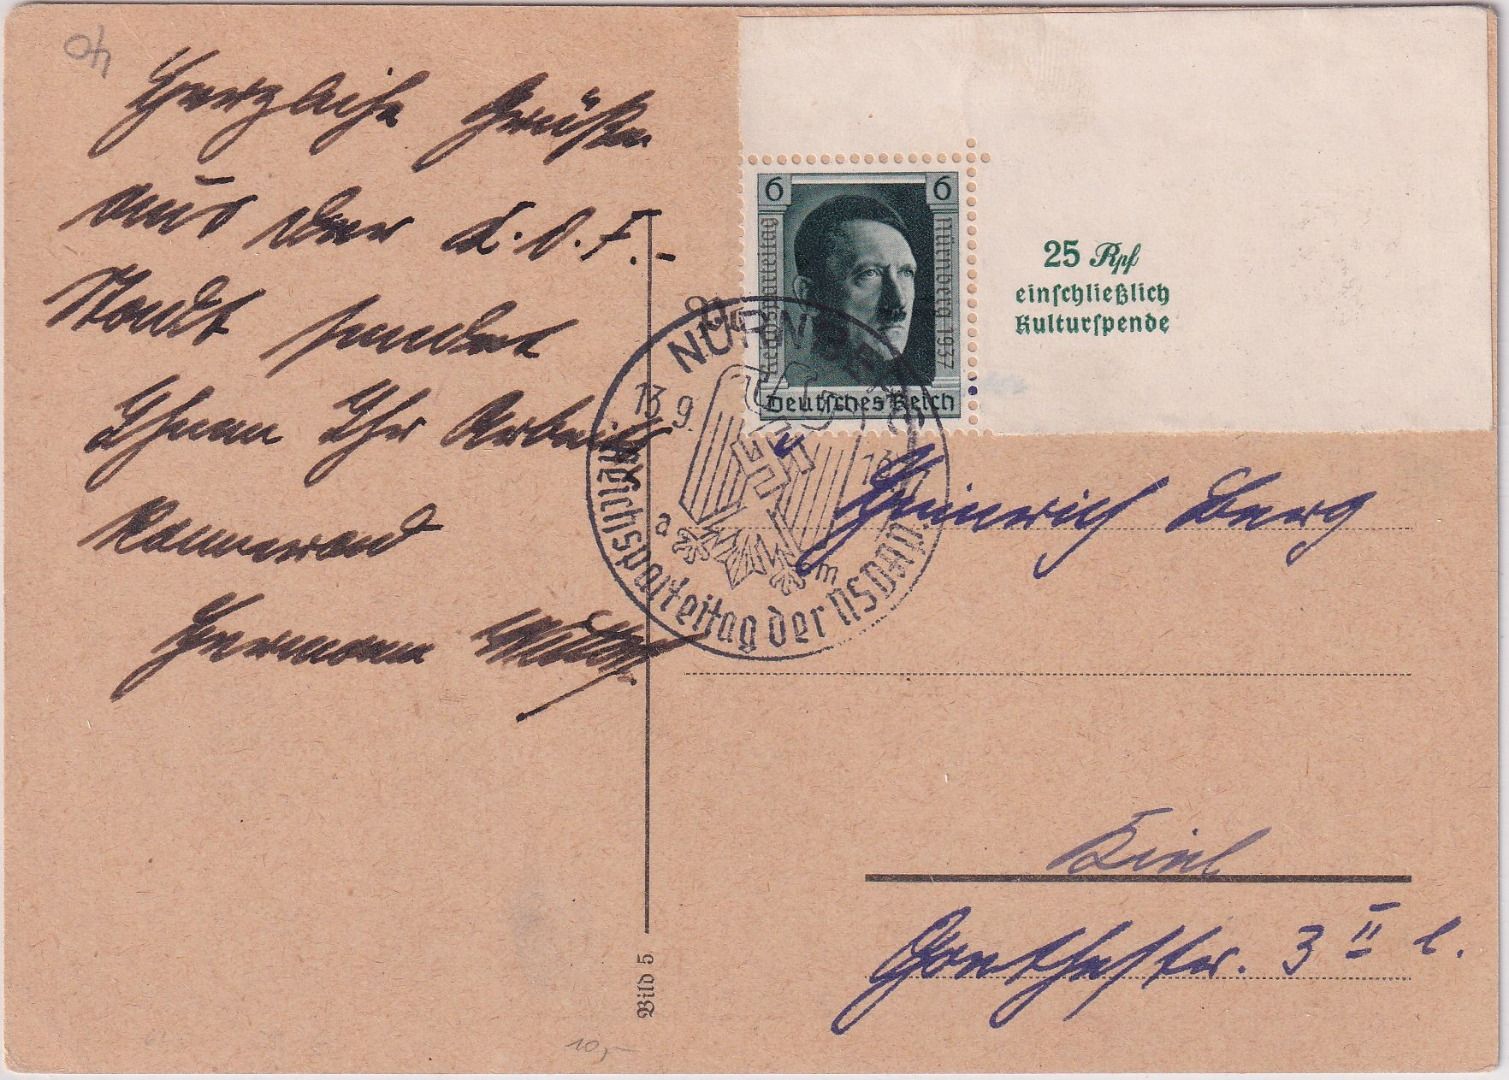 40
Herzliche Grüße
aus der K.d.F.-
Stadt sendet
Ihnen Ihr Arbeits
kamerad
Hermann
6 6
Reichsparteitag
Nürnberg 1937
Deutsches Reich
25 Rpf
einschließlich
Kulturspende
NÜRNBERG
13.9.
a m
Reichsparteitag der NSDAP
Heinrich Berg
Kiel
Goethestr. 3 II l.
Bild 5
10,-